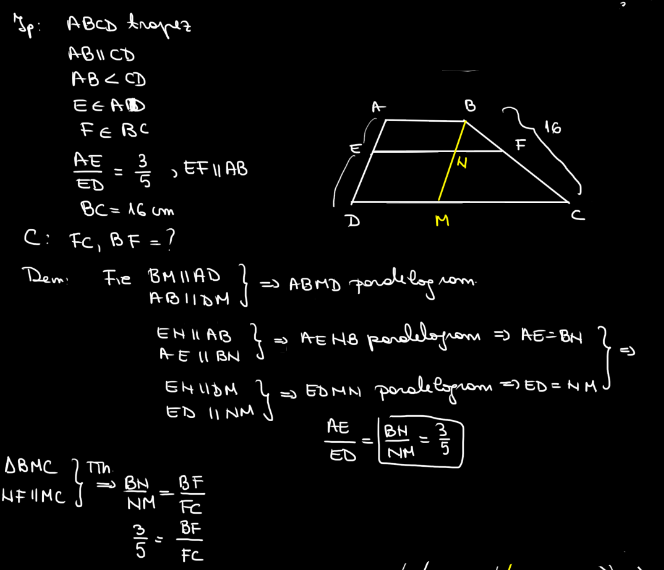 Ip: ABCD trapez
AB || CD
AB < CD
E ∈ AD
F ∈ BC
AE/ED = 3/5 , EF || AB
BC = 16 cm
C: FC, BF = ?
A B 16
E N F
D M C
Dem: Fie BM || AD
AB || DM } ⇒ ABMD paralelogram
EN || AB
AE || BN } ⇒ AENB paralelogram ⇒ AE = BN
EN || DM
ED || NM } ⇒ EDMN paralelogram ⇒ ED = NM } ⇒
AE/ED = BN/NM = 3/5
ΔBMC
NF || MC } TTh ⇒ BN/NM = BF/FC
3/5 = BF/FC